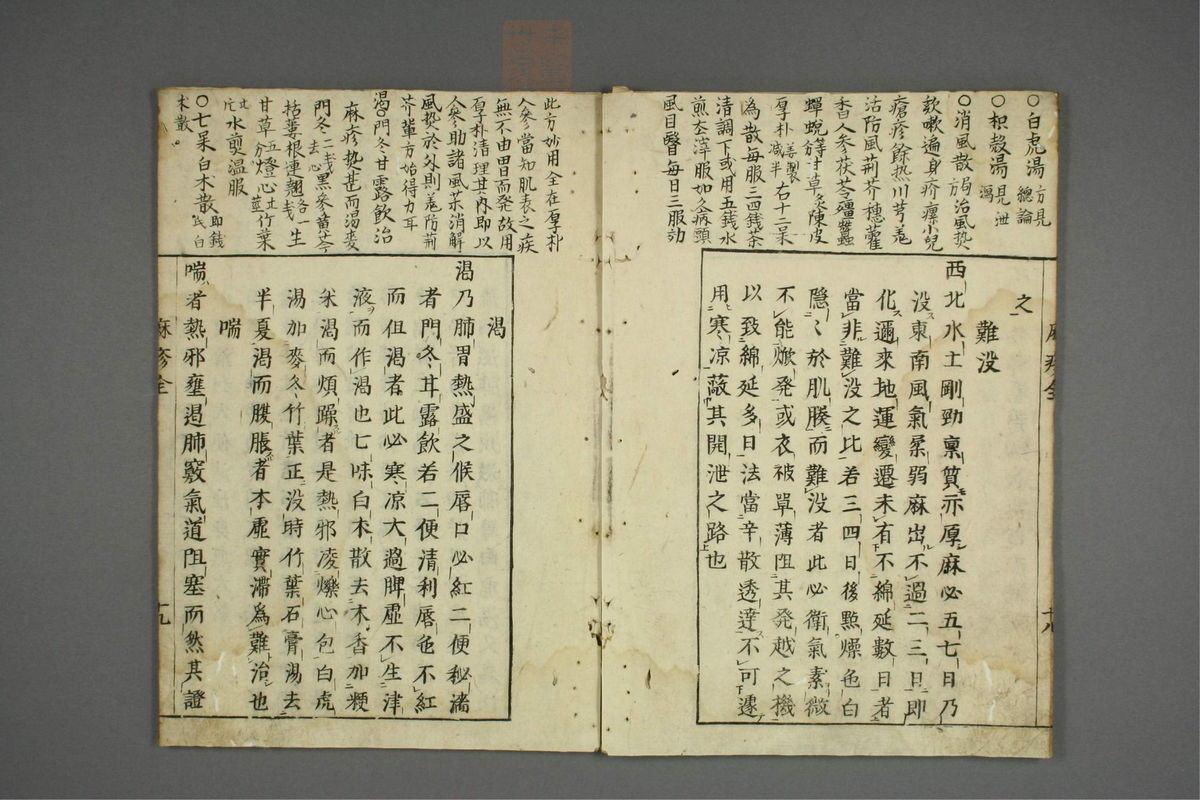 ○白虎湯 方見總論
○枳殼湯 見泄瀉
○消風散 局方治風熱
欬嗽遍身疥癩小兒
瘡疹餘熱川芎羗
活防風荆芥穗藿
香人參茯苓殭蠶
蟬蛻等分甘草炙陳皮
厚朴薑製減半右十二味
為散每服三四錢茶
清調下或用五錢水
煎去滓服如久病頭
風目瞖每日三服効
之
難没
西北水土剛勁稟質亦厚麻必五七日乃
没東南風氣柔弱麻出不過二三日即
化邇來地運變遷未有不綿延數日者
當非難没之比若三四日後點燥色白
隱〻於肌膜而難没者此必衛氣素微
不能燉發或衣被單薄阻其發越之機
以致綿延多日法當辛散透達不可遽
用寒凉蔽其開泄之路也
此方妙用全在厚朴
人參當知肌表之疾
無不由
而發故用
厚朴清理其内即以
人參助諸風藥消解
風熱於外則羗防荊
芥輩方始得力耳
○門冬甘露飲治
麻疹熱甚而渴麥
門冬去心二戔黑參黄芩
括蔞根連翹各一戔生
甘草五分燈心竹葉
水煎温服
○七味白术散即錢氏白
术散
渴
渴乃肺胃熱盛之候唇口必紅二便秘濇
者門冬甘露飲若二便清利唇色不紅
而但渴者此必寒凉大過脾虛不生津
液而作渴也七味白木散去木香加粳
米渴而煩躁者是熱邪凌爍心包白虎
湯加麥冬竹葉正没時竹葉石膏湯去
半夏渴而腹脹者本虛實滯爲難治也
喘
喘者熱邪壅遏肺竅氣道阻塞而然其證
麻疹全
十九